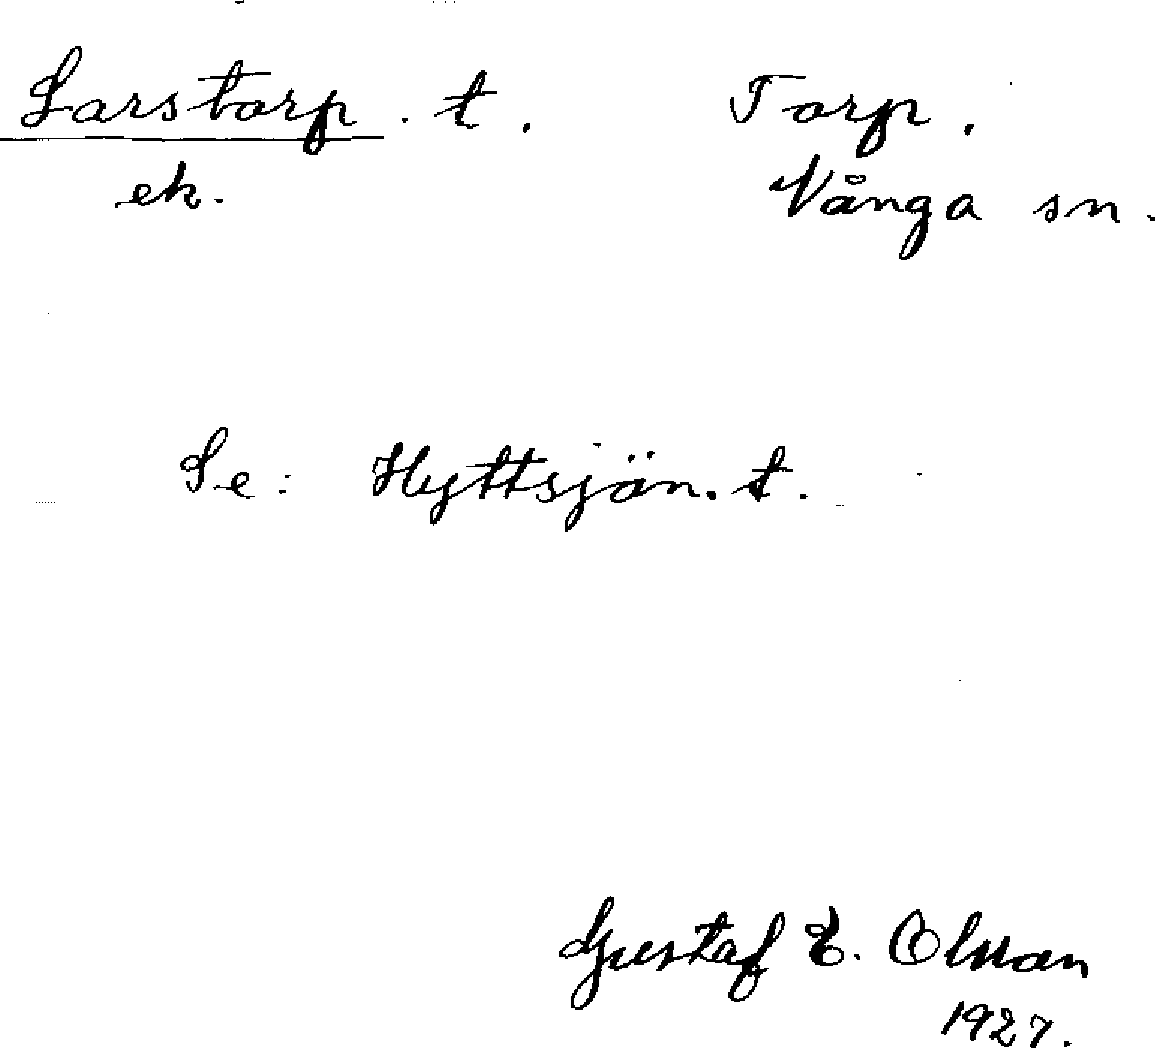 Larstorp. t. Torp.
ek. Vånga sn.
Se: Hyttsjön. t.
Gustaf E. Olsson
1927.